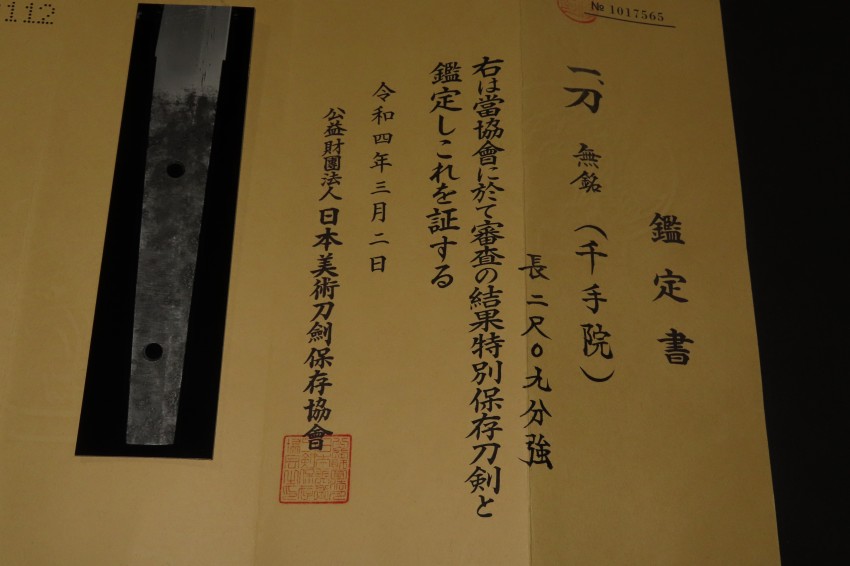 № 1017565
鑑定書
一、刀 無銘(千手院)
長二尺〇九分強
右は當協會に於て審査の結果特別保存刀剣と
鑑定しこれを証する
令和四年三月二日
公益財團法人 日本美術刀劍保存協會
112